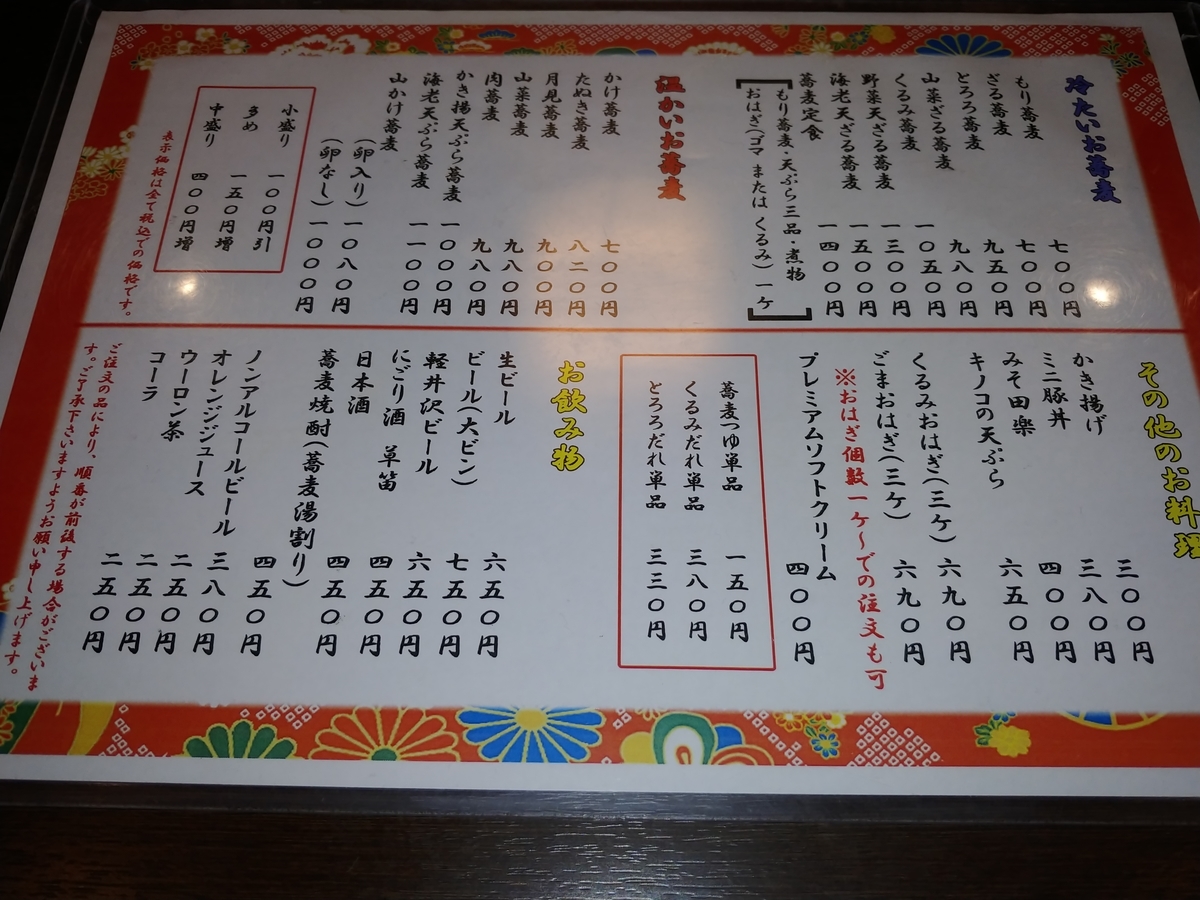 冷たいお蕎麦
もり蕎麦 七〇〇円
ざる蕎麦 七〇〇円
とろろ蕎麦 九五〇円
山菜ざる蕎麦 九八〇円
くるみ蕎麦 一〇五〇円
野菜天ざる蕎麦 一三〇〇円
海老天ざる蕎麦 一五〇〇円
蕎麦定食 一四〇〇円
もり蕎麦・天ぷら三品・煮物
おはぎ(ゴマ または くるみ)一ケ
温かいお蕎麦
かけ蕎麦 七〇〇円
たぬき蕎麦 八二〇円
月見蕎麦 九〇〇円
山菜蕎麦 九八〇円
肉蕎麦 九八〇円
かき揚天ぷら蕎麦 一〇〇〇円
海老天ぷら蕎麦 一一〇〇円
山かけ蕎麦
(卵入り)一〇八〇円
(卵なし)一〇〇〇円
小盛り 一〇〇円引
多め 一五〇円増
中盛り 四〇〇円増
表示価格は全て税込での価格です。
その他のお料理
かき揚げ 三〇〇円
ミニ豚丼 三八〇円
みそ田楽 四〇〇円
キノコの天ぷら 六五〇円
くるみおはぎ(三ケ) 六九〇円
ごまおはぎ(三ケ) 六九〇円
※おはぎ個数一ケ〜での注文も可
プレミアムソフトクリーム 四〇〇円
蕎麦つゆ単品 一五〇円
くるみだれ単品 三八〇円
とろろだれ単品 三三〇円
お飲み物
生ビール 六五〇円
ビール(大ビン) 七五〇円
軽井沢ビール 六五〇円
にごり酒 草笛 四五〇円
日本酒 四五〇円
蕎麦焼酎(蕎麦湯割り) 四五〇円
ノンアルコールビール 三八〇円
オレンジジュース 二五〇円
ウーロン茶 二五〇円
コーラ 二五〇円
ご注文の品により、順番が前後する場合がございま
す。ご了承下さいますようお願い申し上げます。